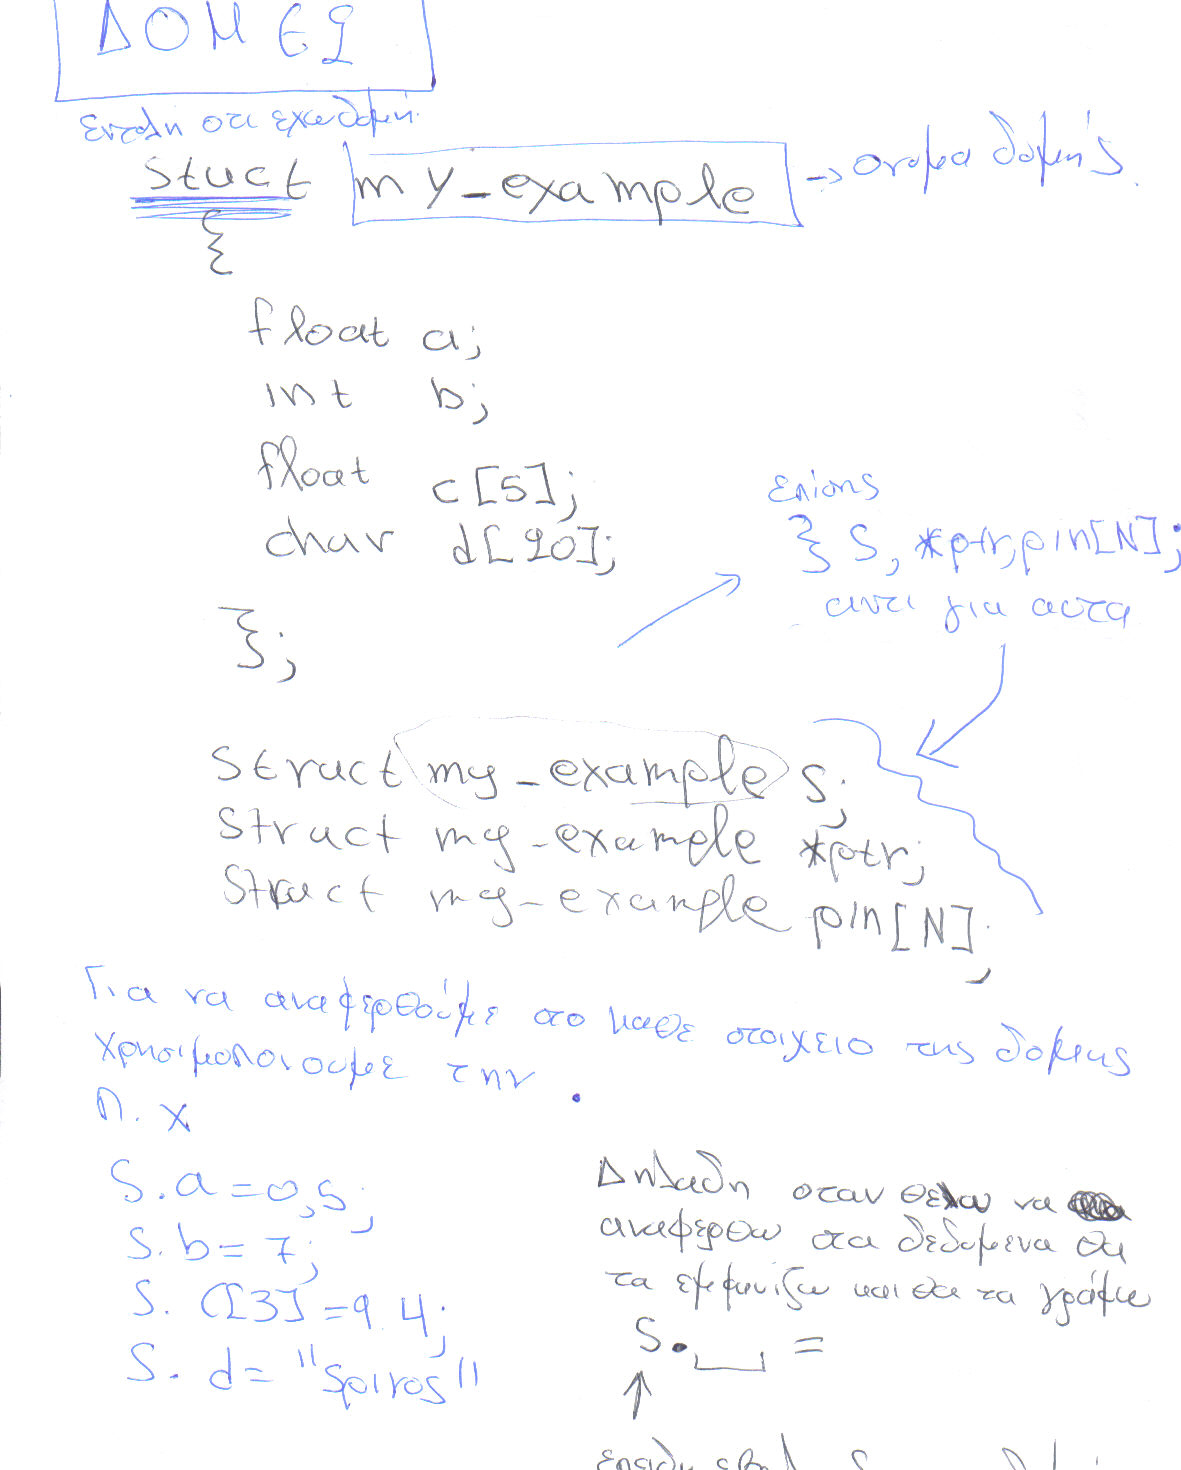 ΔΟΜΕΣ
εντολη οτι εχω δομή.
stuct my_example → ονομα δομής.
{
float a;
int b;
float c[5];
char d[20];
};
επίσης
} S, *ptr, pin[N];
αντι για αυτα
struct my_example s;
struct my_example *ptr;
struct my_example pin[N];
Για να αναφερθούμε στο καθε στοιχειο της δομης
χρησιμοποιουμε την .
π.χ
S.a = 0,5;
S.b = 7;
S.C[3] = 9.4;
S.d = "Spiros"
Δηλαδη οταν θελω να
αναφερθω στα δεδομενα θα
τα εμφανιζω και θα τα γράφω
S. =
επειδη